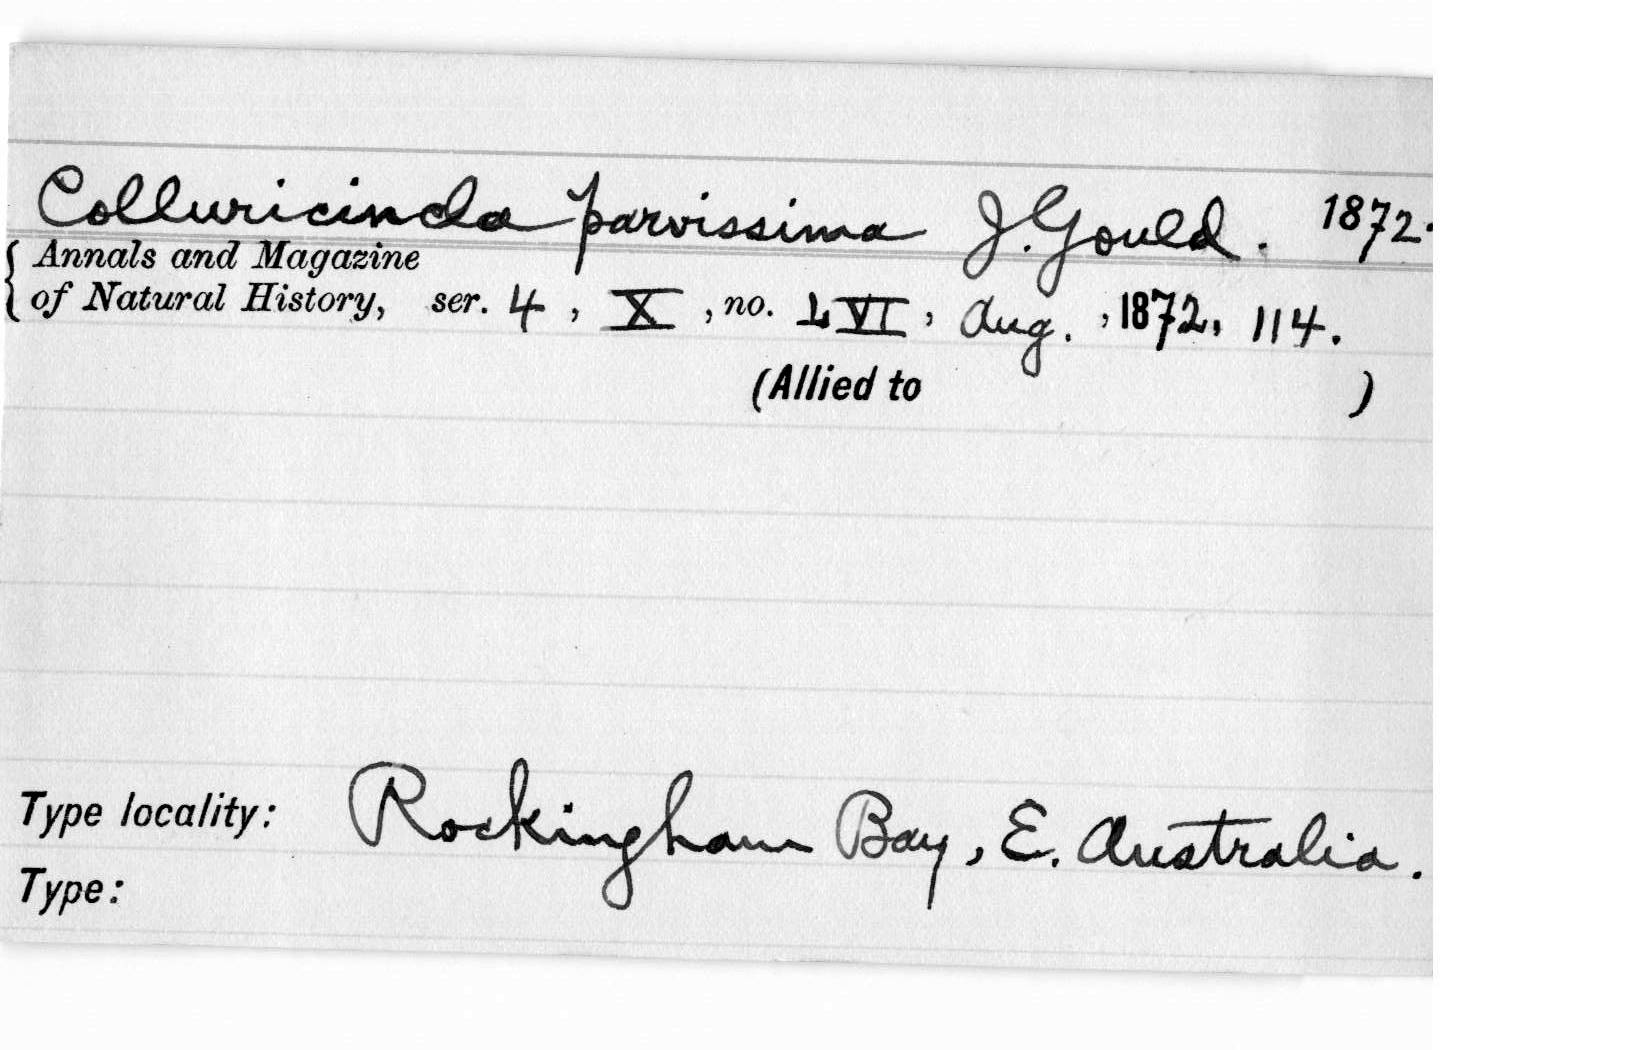 Colluricincla parvissima J. Gould. 1872.
Annals and Magazine
of Natural History, ser. 4, X, no. LVI, Aug., 1872, 114.
(Allied to )
Type locality: Rockingham Bay, E. Australia.
Type: